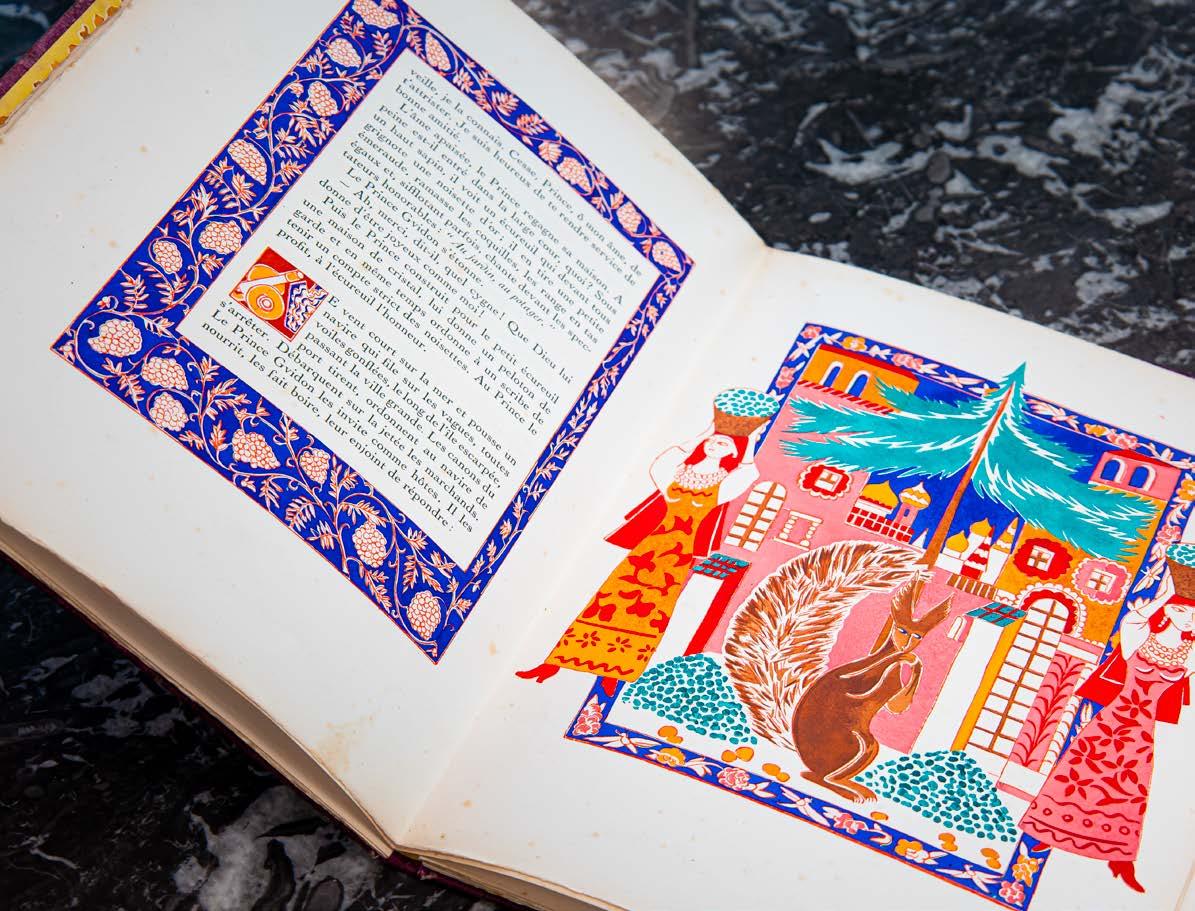 veille, je la connais. Cesse, Prince, ô mon âme, de
t'attrister. Je suis heureux de te rendre service de
bonne amitié.
L'âme apaisée, le Prince regagne sa maison. A
peine est-il entré dans la large cour, quoi? Sous
un haut sapin, il voit un écureuil qui devant tous
grignote une noisette d'or; il en tire une petite
émeraude, ramasse les coquilles, les range en tas
égaux et, sifflotant parfois, chante devant les spec-
tateurs honorables : « Au jardin, au potager. »
Le Prince Gvidon s'étonne.
— Ah, merci, dit-il, quel cygne! Que Dieu lui
donne d'être joyeux comme moi!
Puis le Prince construit pour le petit écureuil
une maison de cristal, lui donne un peloton de
garde et en même temps ordonne à un scribe de
tenir un compte strict des noisettes. Au Prince le
profit, à l'écureuil l'honneur.
E vent court sur la mer et pousse un
navire qui file sur les vagues, toutes
voiles gonflées, le long de l'île escarpée,
passant la ville grande. Les canons du
port tirent, ordonnent au navire de
s'arrêter. Débarquent sur la jetée les marchands.
Le Prince Gvidon les invite comme hôtes. Il les
nourrit, les fait boire, et leur enjoint de répondre :